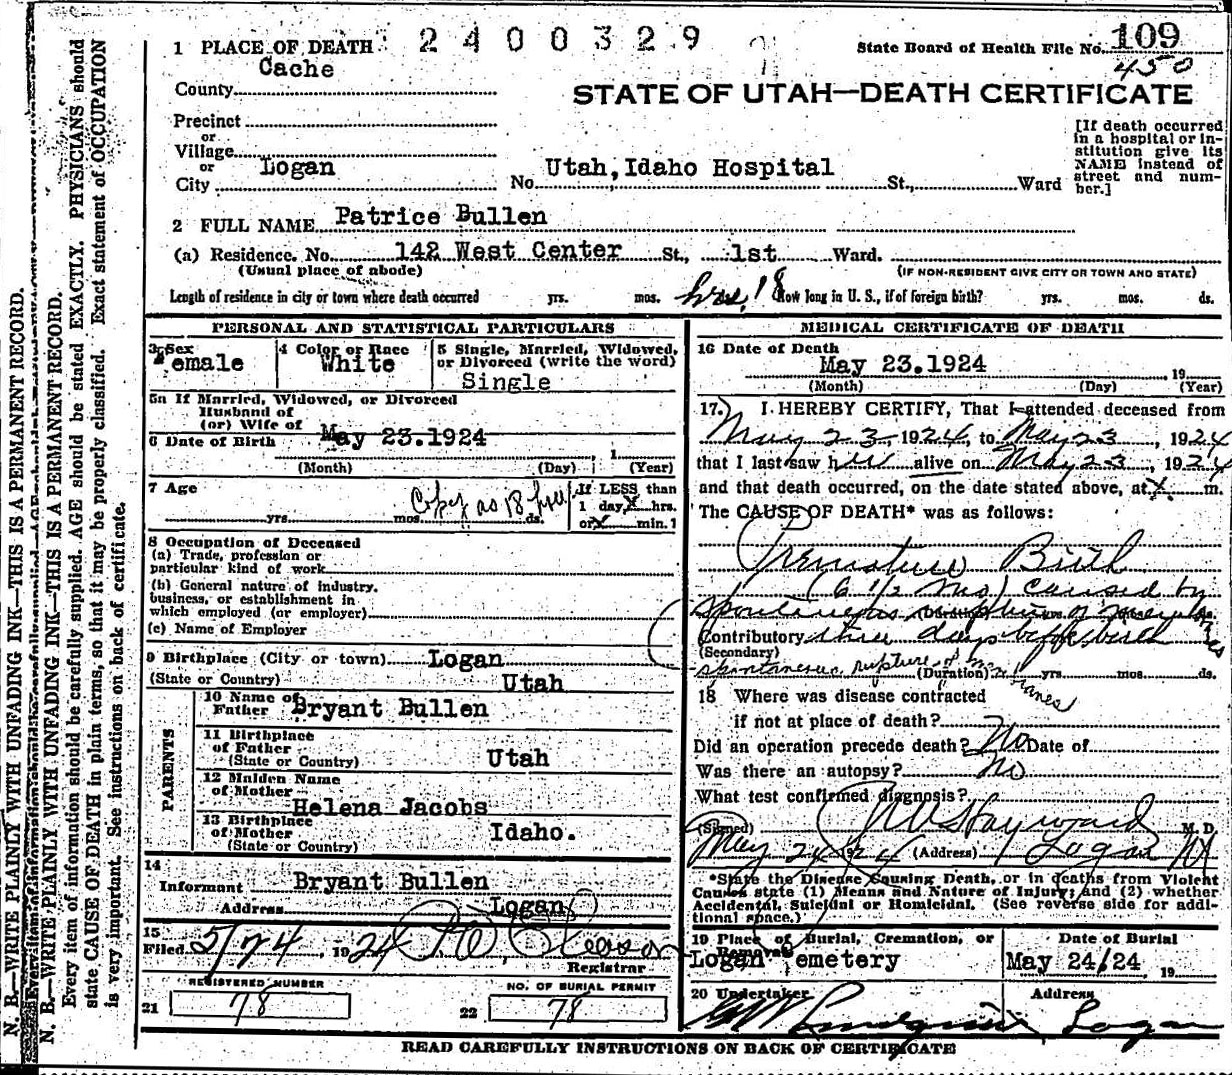 2400329
State Board of Health File No. 109
450
1 PLACE OF DEATH
Cache
County
STATE OF UTAH—DEATH CERTIFICATE
Precinct
or
Village
or
City Logan No. Utah, Idaho Hospital St., Ward
[If death occurred in a hospital or institution give its NAME instead of street and number.]
2 FULL NAME Patrice Bullen
(a) Residence. No. 142 West Center St., 1st Ward.
(Usual place of abode) (IF NON-RESIDENT GIVE CITY OR TOWN AND STATE)
Length of residence in city or town where death occurred yrs. mos. hrs, 18 How long in U. S., if of foreign birth? yrs. mos. ds.
PERSONAL AND STATISTICAL PARTICULARS
3 Sex
Female
4 Color or Race
White
5 Single, Married, Widowed,
or Divorced (write the word)
Single
5a If Married, Widowed, or Divorced
Husband of
(or) Wife of
6 Date of Birth May 23.1924
(Month) (Day) (Year)
7 Age
yrs. mos. ds.
If LESS than
1 day, x hrs.
or x min. 1
8 Occupation of Deceased
(a) Trade, profession or
particular kind of work
(b) General nature of industry.
business, or establishment in
which employed (or employer)
(c) Name of Employer
9 Birthplace (City or town) Logan
(State or Country) Utah
PARENTS
10 Name of
Father Bryant Bullen
11 Birthplace
of Father
(State or Country) Utah
12 Maiden Name
of Mother
Helena Jacobs
13 Birthplace
of Mother
(State or Country) Idaho.
14
Informant Bryant Bullen
Address Logan
15
Filed 5/24, 1924
Registrar
REGISTERED NUMBER
21 78
NO. OF BURIAL PERMIT
22 78
MEDICAL CERTIFICATE OF DEATH
16 Date of Death
May 23.1924 19
(Month) (Day) (Year)
17. I HEREBY CERTIFY, That I attended deceased from
May 23 1924, to May 23, 1924
that I last saw her alive on May 23, 1924
and that death occurred, on the date stated above, at x m.
The CAUSE OF DEATH* was as follows:
Premature Birth
(6 1/2 Mo) caused by
spontaneous rupture of membranes
Contributory three days before birth
(Secondary)
spontaneous rupture of membranes
(Duration) yrs. mos. ds.
18 Where was disease contracted
if not at place of death?
Did an operation precede death? No Date of
Was there an autopsy? No
What test confirmed diagnosis?
(Signed) Hayward M. D.
May 24 1924 (Address) Logan Ut
*State the Disease Causing Death, or in deaths from Violent
Causes state (1) Means and Nature of Injury; and (2) whether
Accidental, Suicidal or Homicidal. (See reverse side for addi-
tional space.)
19 Place of Burial, Cremation, or
Removal
Logan Cemetery
Date of Burial
May 24/24 19
20 Undertaker
Address
Logan
READ CAREFULLY INSTRUCTIONS ON BACK OF CERTIFICATE
N. B.—WRITE PLAINLY WITH UNFADING INK—THIS IS A PERMANENT RECORD.
N. B.—WRITE PLAINLY WITH UNFADING INK—THIS IS A PERMANENT RECORD.
Every item of information should be carefully supplied. AGE should be stated EXACTLY. PHYSICIANS should
state CAUSE OF DEATH in plain terms, so that it may be properly classified. Exact statement of OCCUPATION
is very important. See instructions on back of certificate.